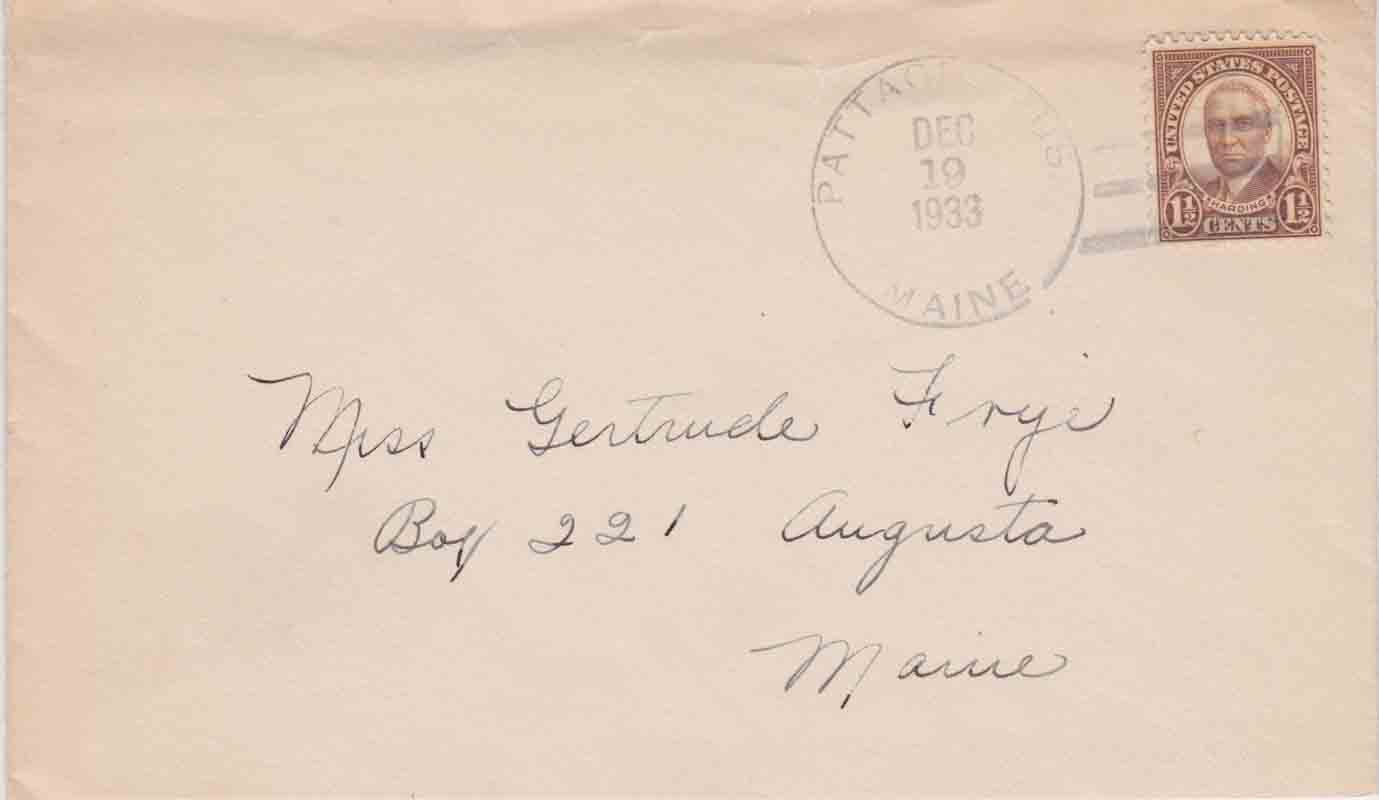 DEC
19
1933
MAINE
UNITED STATES POSTAGE
HARDING
1½ CENTS 1½
Miss Gertrude Frye
Box 221 Augusta
Maine